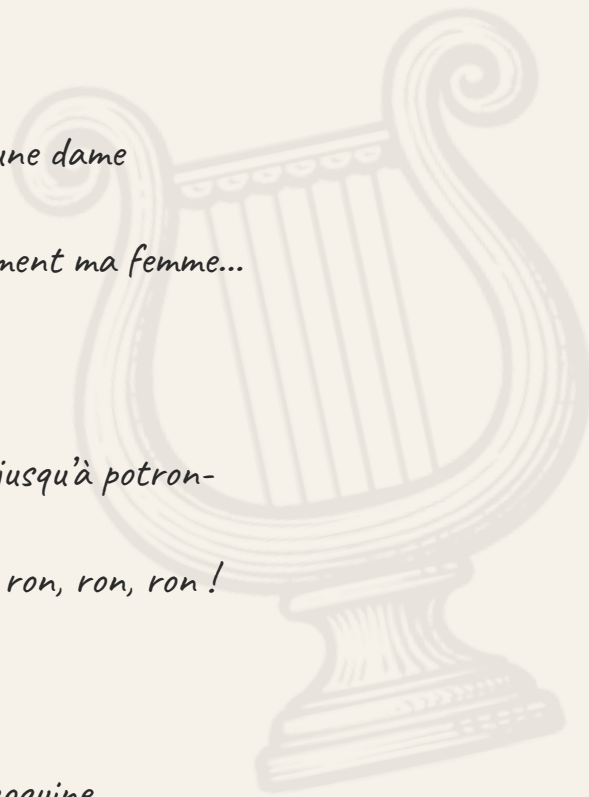 une dame
ment ma femme...
jusqu'à potron-
ron, ron, ron !